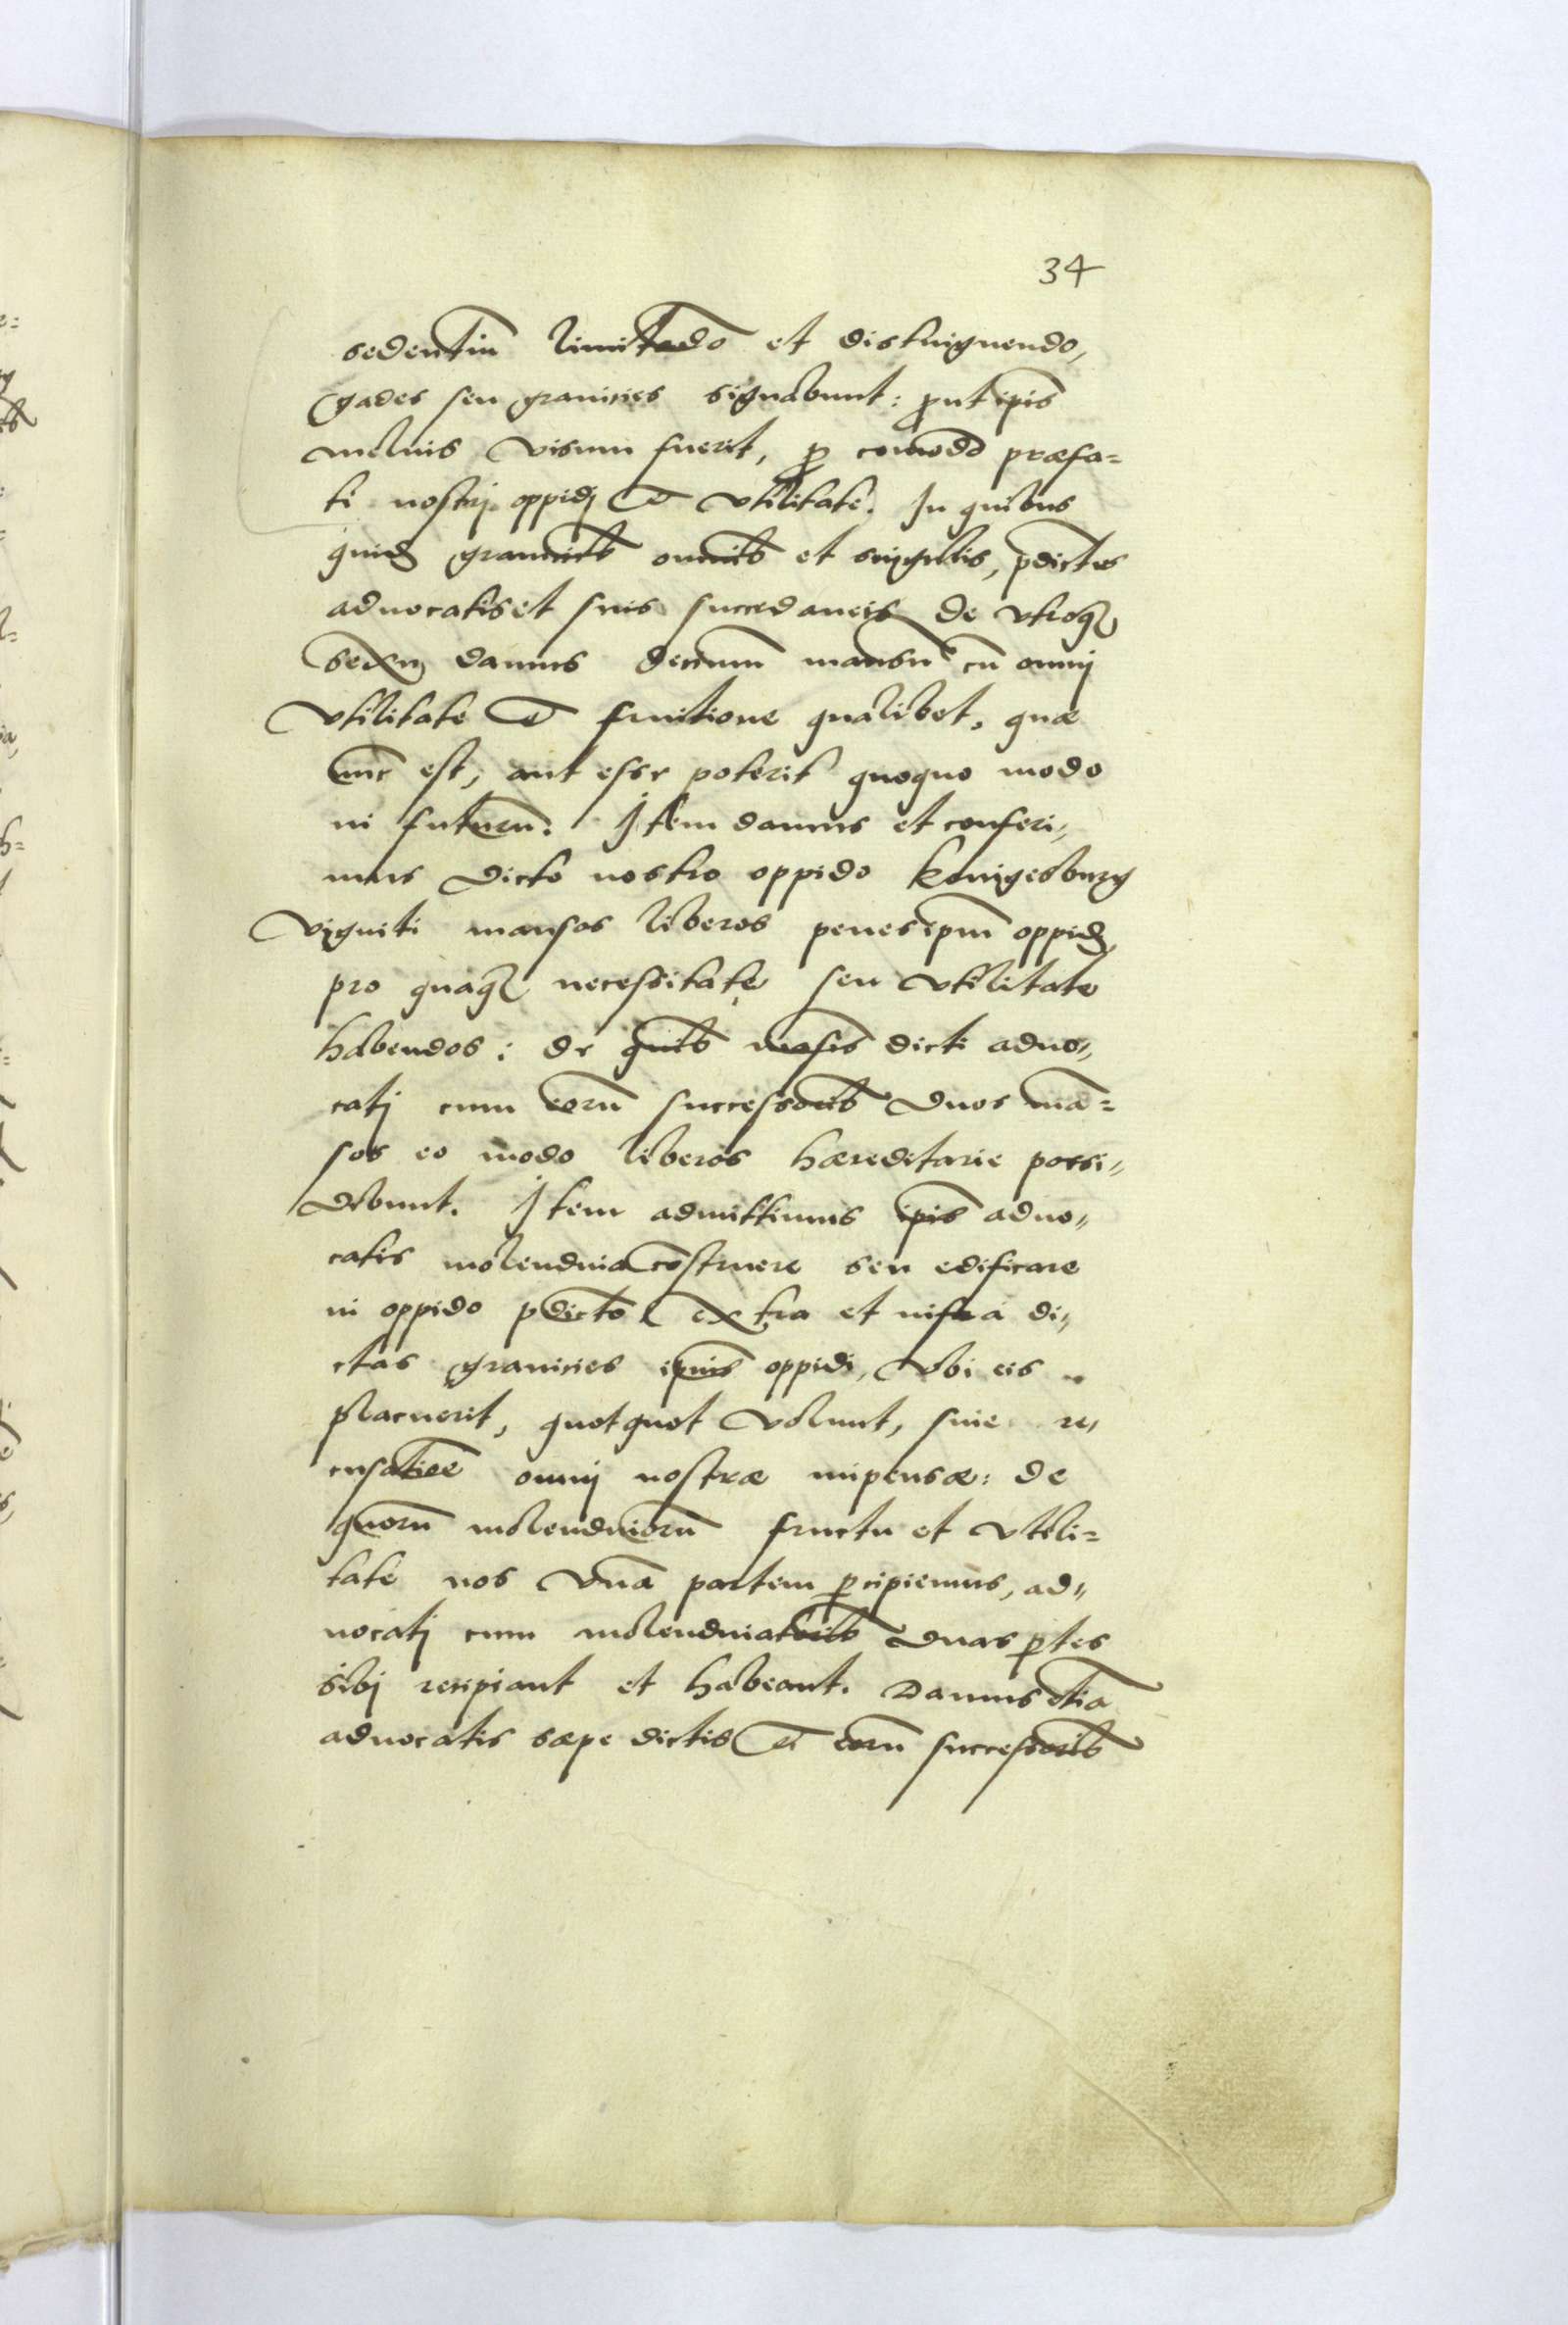 34
sedentiū limitādo et distinguendo,
gades seu granicies signabunt: ꝓut ip̄is
melius visum fuerit, ꝓ com̄odo præfa=
ti nostrj oppidj & vtilitate. In quibus
quid granicib omib et singulis, p̄dictis
aduocatis et suis succedaneis de vtroqꝫ
sexu damus decimum mansū cū omnj
vtilitate & fruitione qualibet, quæ
nūc est, aut esse poterit quoquo modo
in futurū. Item damus et conferi„
mus dicto nostro oppido Konigesburg
viginti mansos liberos penes ip̄m oppidū
pro quaqꝫ necessitate seu vtilitate
habendos: de quib māsis dicti aduo„
catj cum eorū successorib duos mā=
sos eo modo liberos hæreditarie possi„
debunt. Item admittimus ip̄is aduo„
catis molendina cōstruere seu edificare
in oppido p̄dicto extra et infra di„
ctas granicies ip̄ius oppidi, vbi eis
placuerit, quotquot volunt, sine re„
cusatiōe omnj nostræ impensæ: de
quorū molendinorū fructu et vtili=
tate nos vnā partem ꝑcipiemus, ad„
uocatj cum molendinatorib duas ꝑtes
sibj recipiant et habeant. Damus etiā
aduocatis sæpe dictis & eorū successorib